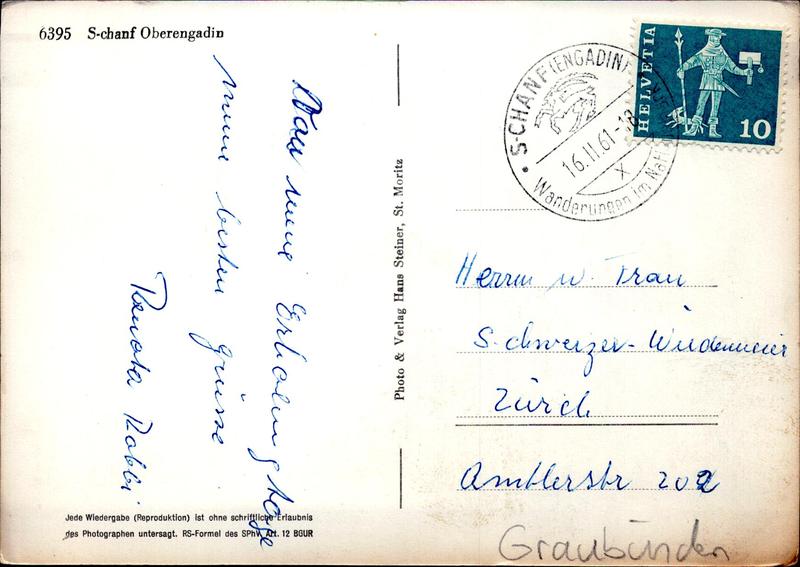 6395 S-chanf Oberengadin
meine Erholungstage
meine besten grüsse
Photo & Verlag Hans Steiner, St. Moritz
S-CHANF (ENGADIN)
16.11.61-18
X
Wanderungen im Nat
HELVETIA
10
Herrn u. Frau
Schweizer-Wiedenmeier
Zürich
Amtlerstr 202
Jede Wiedergabe (Reproduktion) ist ohne schriftliche Erlaubnis
des Photographen untersagt. RS-Formel des SPhV, Art. 12 BGUR
Graubünden